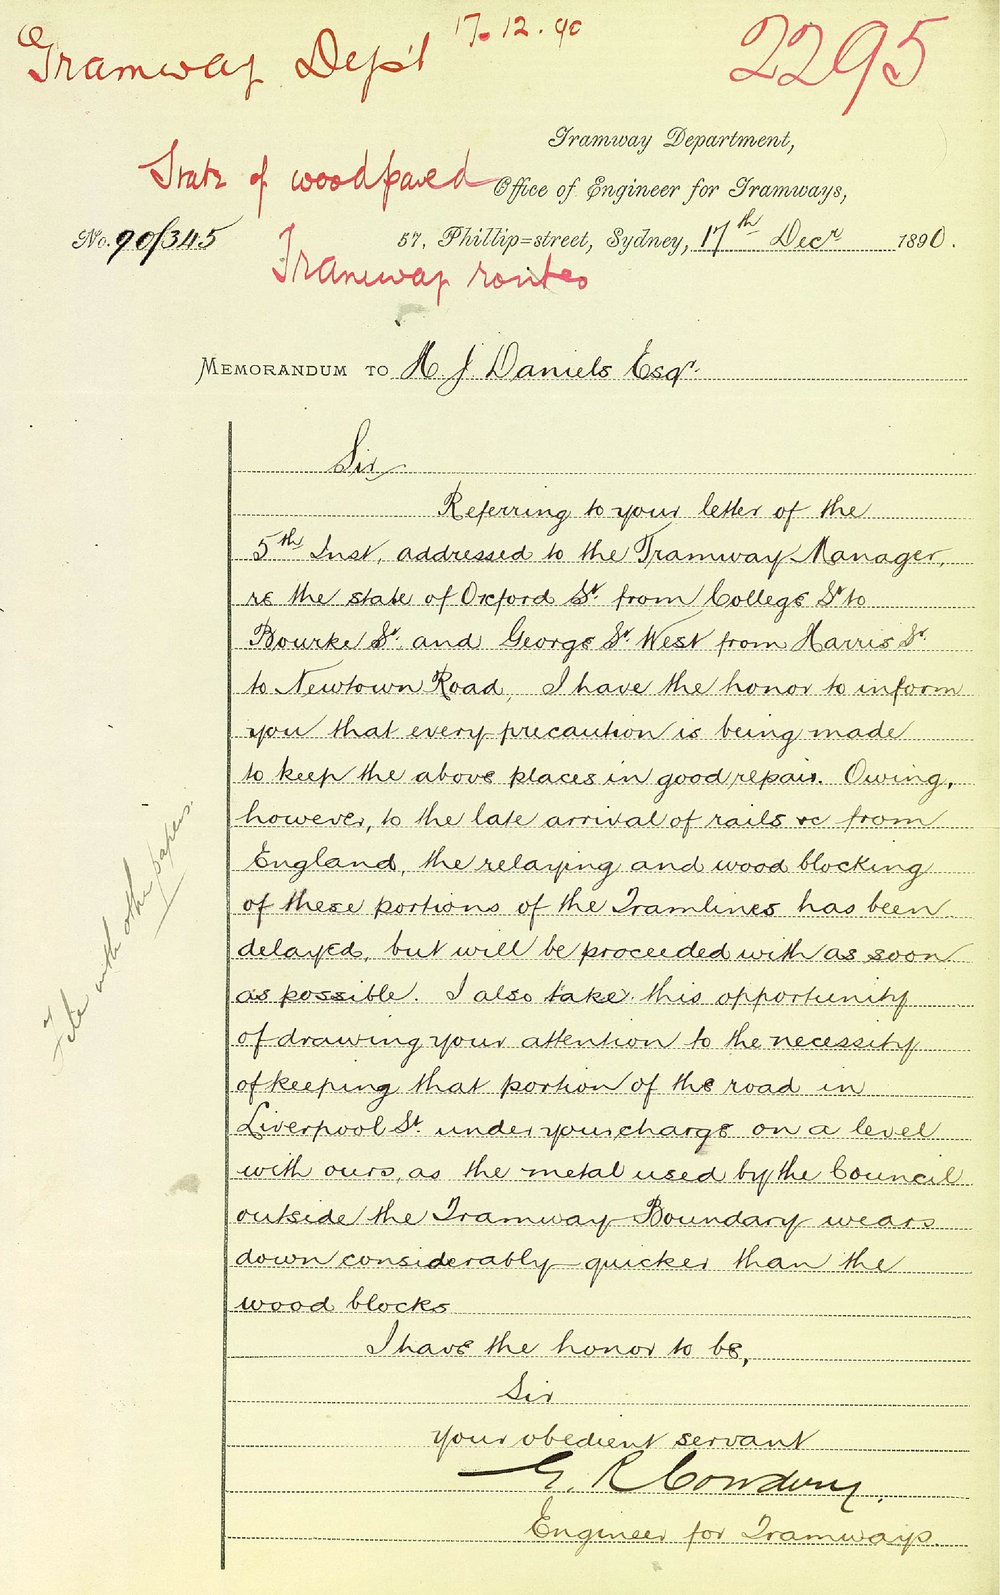 Tramway Dep't 17.12.90
2295
Tramway Department,
State of woodpaved
Office of Engineer for Tramways,
No. 90/345
57, Phillip=street, Sydney, 17th Decr 1890.
Tramway routes
MEMORANDUM TO H J Daniels Esqr.
Sir
Referring to your letter of the
5th Inst, addressed to the Tramway Manager,
re the state of Oxford St. from College St to
Bourke St. and George St. West from Harris St.
to Newtown Road, I have the honor to inform
you that every precaution is being made
to keep the above places in good repair. Owing,
however, to the late arrival of rails &c from
England, the relaying and wood blocking
of these portions of the Tramlines has been
delayed, but will be proceeded with as soon
as possible. I also take this opportunity
of drawing your attention to the necessity
of keeping that portion of the road in
Liverpool St. under your charge on a level
with ours, as the metal used by the Council
outside the Tramway Boundary wears
down considerably quicker than the
wood blocks
I have the honor to be,
Sir
your obedient servant
G. R Cowdery.
Engineer for Tramways.
File with other papers